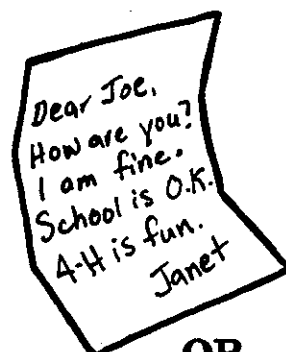 Dear Joe,
How are you?
I am fine.
School is O.K.
4-H is fun.
Janet
OR